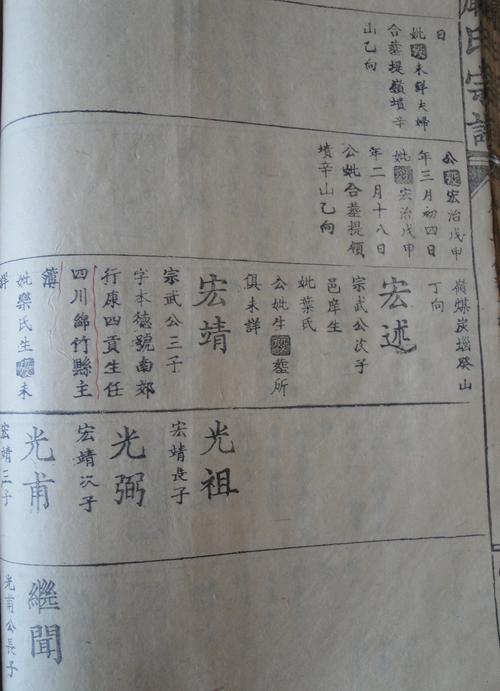 氏宗譜
日
妣歿未詳夫婦
合墓提嶺墳辛
山乙向
公歿宏治戊申
年三月初四日
妣歿宏治戊申
年二月十八日
公妣合墓提領
墳辛山乙向
嶺煤炭壋癸山
丁向
宏述
宗武公次子
邑庠生
妣葉氏
公妣生歿塟所
俱未詳
宏靖
宗武公三子
字本德號南郊
行康四貢生任
四川綿竹縣主
簿
妣樂氏生歿未
詳
光祖
宏靖長子
光弼
宏靖次子
光甫
宏靖三子
繼聞
光甫公長子